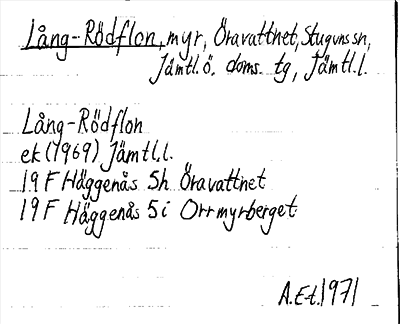 Lång-Rödflon, myr, Öravattnet, Stuguns sn,
Jämtl. ö. doms. tg, Jämtl. l.
Lång-Rödflon
ek (1969) Jämtl. l.
19 F Häggenås 5h Öravattnet
19 F Häggenås 5i Orrmyrberget
A. Et. 1971